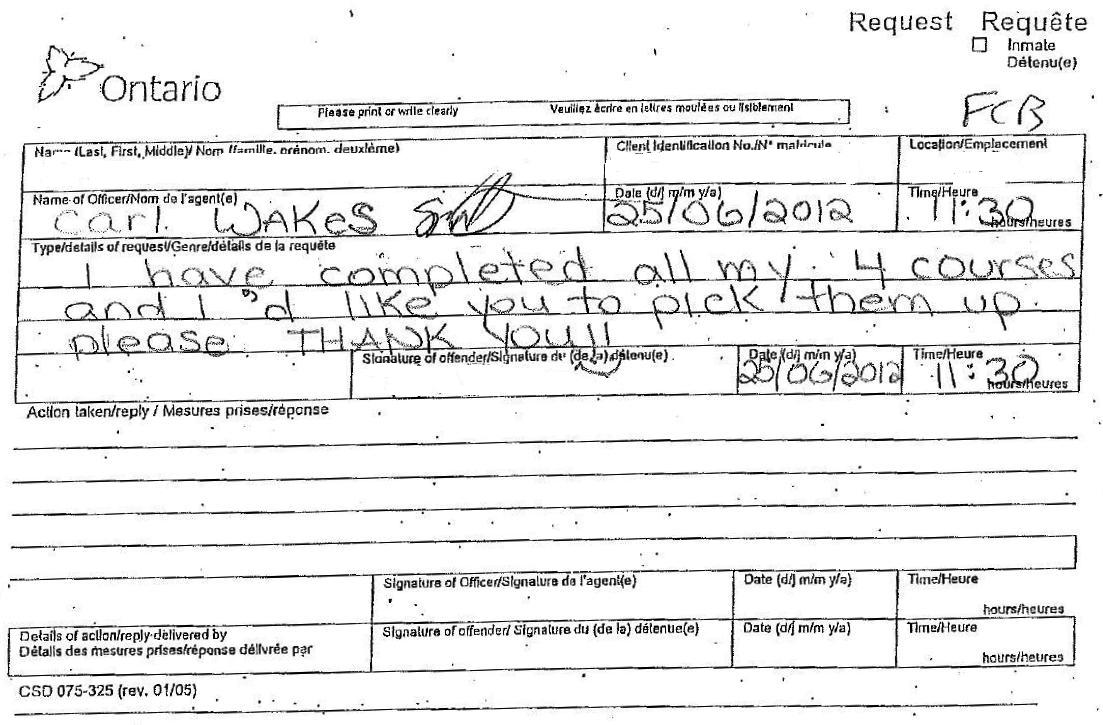 Request Requête
☐ Inmate
Détenu(e)
Ontario
Please print or write clearly Veuillez écrire en lettres moulées ou lisiblement
FCB
Name (Last, First, Middle)/ Nom (famille, prénom, deuxième) Client Identification No./N° matricule Location/Emplacement
Name of Officer/Nom de l'agent(e) Date (d/j m/m y/a) Time/Heure
Carl WAKES 25/06/2012 11:30
hours/heures
Type/details of request/Genre/détails de la requête
I have completed all my 4 courses
and I'd like you to pick them up
please THANK YOU!!
Signature of offender/Signature du (de la) détenu(e) Date (d/j m/m y/a) Time/Heure
25/06/2012 11:30
hours/heures
Action taken/reply / Mesures prises/réponse
Signature of Officer/Signature de l'agent(e) Date (d/j m/m y/a) Time/Heure
hours/heures
Details of action/reply delivered by Signature of offender/ Signature du (de la) détenue(e) Date (d/j m/m y/a) Time/Heure
Détails des mesures prises/réponse délivrée par
hours/heures
CSD 075-325 (rev. 01/05)